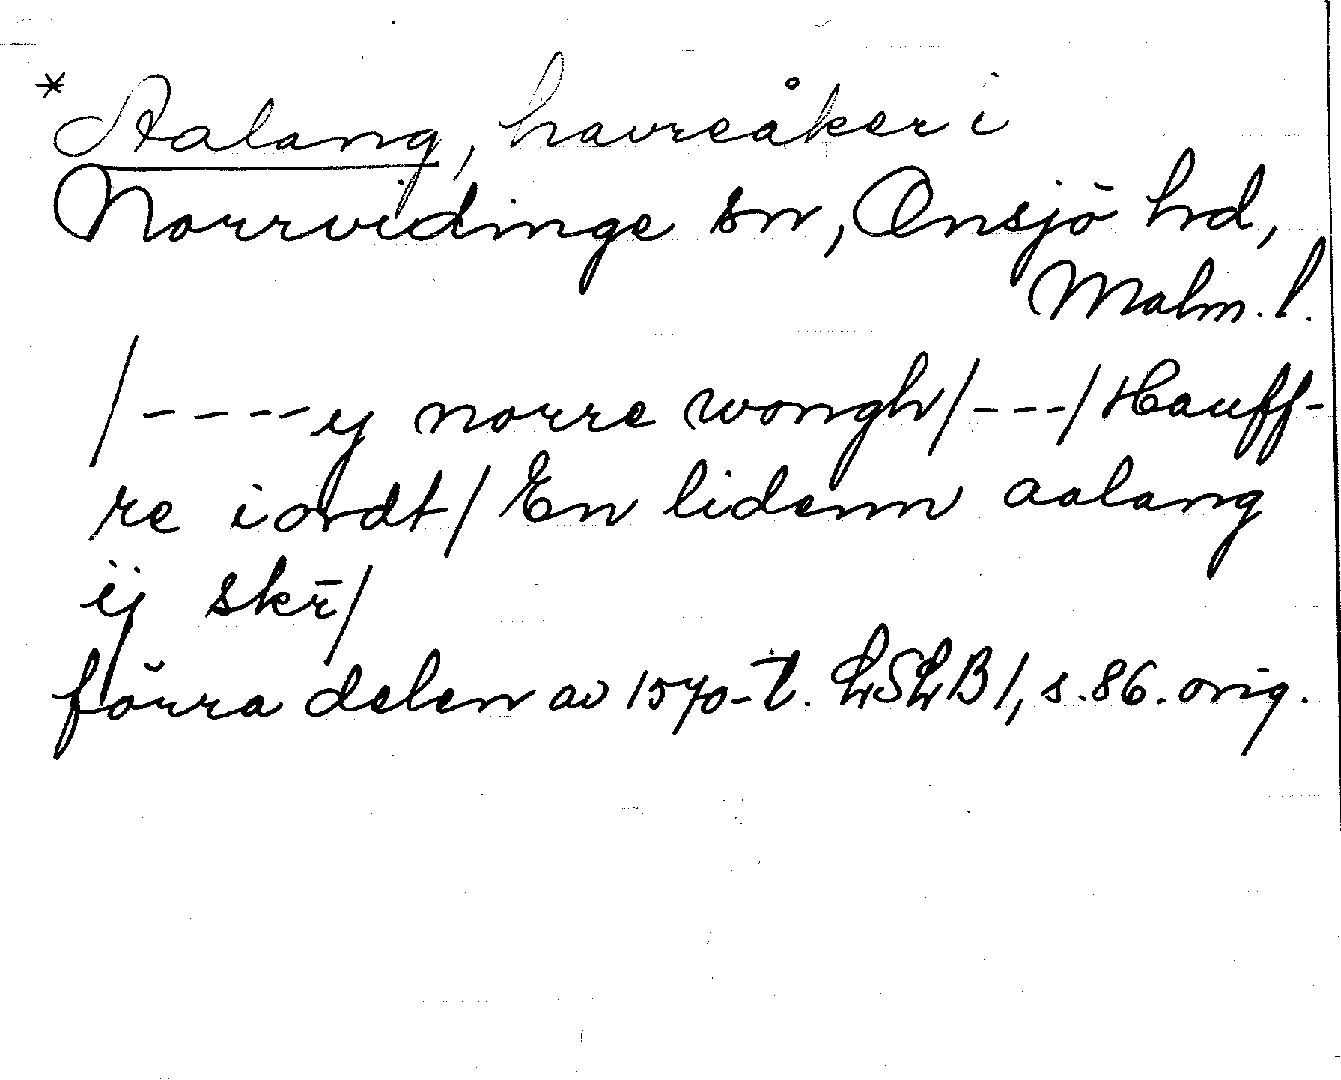 *Aalang, havreåker i
Norrvidinge sn, Onsjö hd,
Malm. l.
/----y norre wongh/---/Hauff-
re iordt/ En lidenn aalang
ij skr̄/
förra delen av 1570-t. LSLB 1, s. 86. orig.